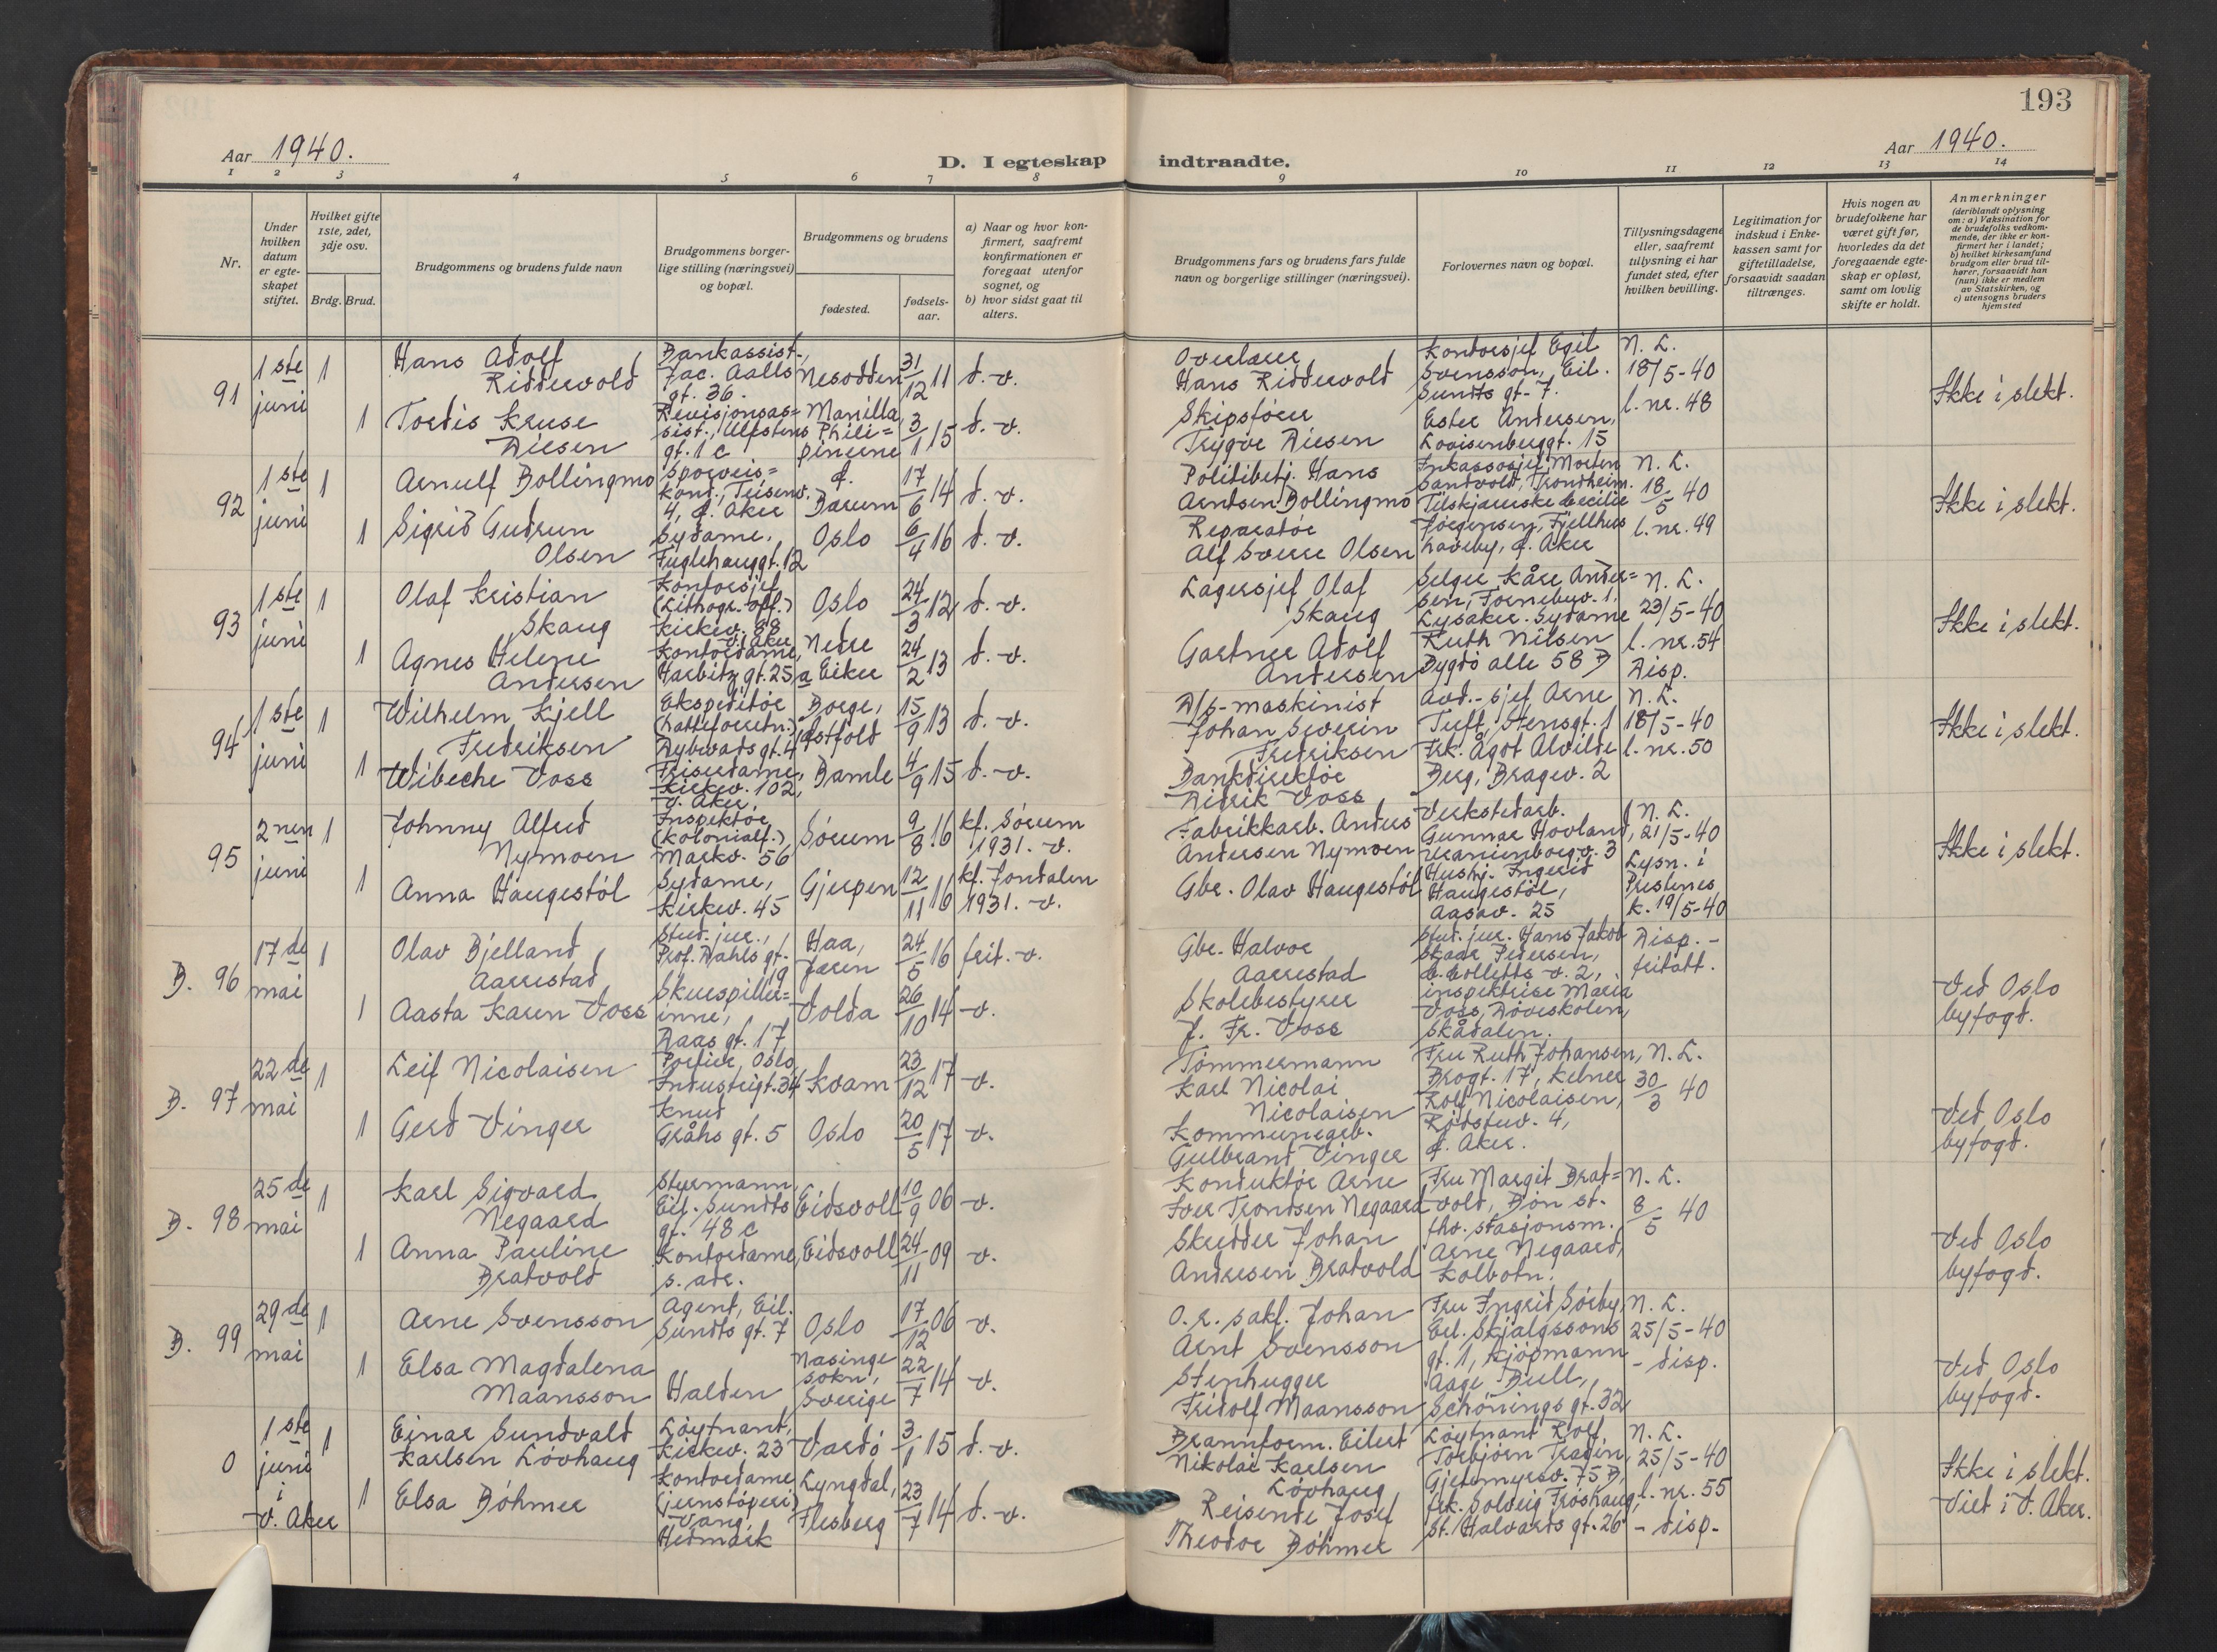 193
Aar 1940.
D. I egteskap indtraadte.
Aar 1940.
1 2 3 4 5 6 7 8 9 10 11 12 13 14
Nr.
Under hvilken datum er egteskapet stiftet.
Hvilket gifte 1ste, 2det, 3dje osv.
Brdg. Brud.
Brudgommens og brudens fulde navn
Brudgommens borgerlige stilling (næringsvei) og bopæl.
Brudgommens og brudens
fødested.
fødselsaar.
a) Naar og hvor konfirmert, saafremt konfirmationen er foregaat utenfor sognet, og
b) hvor sidst gaat til alters.
Brudgommens fars og brudens fars fulde navn og borgerlige stillinger (næringsvei).
Forlovernes navn og bopæl.
Tillysningsdagene eller, saafremt tillysning ei har fundet sted, efter hvilken bevilling.
Legitimation for indskud i Enkekassen samt for giftetilladelse, forsaavidt saadan tiltrænges.
Hvis nogen av brudefolkene har været gift før, hvorledes da det foregaaende egteskap er opløst, samt om lovlig skifte er holdt.
Anmerkninger
(deriblandt oplysning om: a) Vaksination for de brudefolks vedkommende, der ikke er konfirmert her i landet; b) hvilket kirkesamfund brudgom eller brud tilhører, forsaavidt han (hun) ikke er medlem av Statskirken, og c) utensogns bruders hjemsted
91 1ste juni 1 Hans Adolf Riddervold Bankassist., Jac. Aalls gt. 36. Nesodden 31/12 11 d. v. Overlærer Hans Riddervold Kontorsjef Egil Svensson, Eil. Sundts gt. 7. N. L. 18/5-40 l. nr. 48 Ikke i slekt.
1 Tordis Kruse Riesen Revisjonsas=sist., Ulfstens gt. 1 c Manilla, Phili=pinerne 3/1 15 d. v. Skipsfører Trygve Riesen Ester Andersen, Lovisenberggt. 15
92 1ste juni 1 Arnulf Bollingmo Sporveis=kond., Teisenv. 4, Ø. Aker Ø. Bærum 17/6 14 d. v. Politibetj. Hans Arntsen Bollingmo Inkassosjef Morten Sandvold, Trondheim. N. L. 18/5 40 l. nr. 49 Ikke i slekt.
1 Sigrid Gudrun Olsen Sydame, Fuglehauggt. 12 Oslo 6/4 16 d. v. Reparatør Alf Sverre Olsen Tilskjærerske Cecilie Jørgensen, Fjellhus haveby, Ø. Aker
93 1ste juni 1 Olaf Kristian Skaug Kontorsjef (Lithogr. Off.) Kirkev. 88 V. Aker Oslo 24/3 12 d. v. Lagersjef Olaf Skaug Selger Kåre Ander=sen, Fornebuv. 1. Lysaker. N. L. 23/5-40 l. nr. 54 Disp. Ikke i slekt.
1 Agnes Helene Andersen Kontordame, Harbitz gt. 25 a Nedre Eiker 24/2 13 d. v. Gartner Adolf Andersen Sydame Ruth Nilsen Bygdø alle 58 B
94 1ste juni 1 Wilhelm Kjell Fredriksen Ekspeditør (hatteforretn.) Rybwads gt. 4 Borge, Østfold 15/9 13 d. v. D/S-maskinist Johan Severin Fredriksen Avd.-sjef Arne Tuft, Stensgt. 1 N. L. 18/5-40 l. nr. 50 Ikke i slekt.
1 Wibeche Voss Friserdame, Kirkev. 102, V. Aker Bamle 4/9 15 d. v. Bankdirektør Didrik Voss Frk. Ågot Alvilde Berg, Bragev. 2
95 2nen juni 1 Johnny Alfred Nymoen Inspektør (kolonialf.) Markv. 56 Sørum 9/8 16 kf. Sørum 1931. v. Fabrikkarb. Anders Andersen Nymoen Verkstedarb. Gunnar Hovland, Uranienborgv. 3 N. L. 21/5-40 Lysn. i Prestenes k. 19/5-40 Ikke i slekt.
1 Anna Haugestøl Sydame, Kirkev. 45 Gjerpen 12/11 16 kf. Jondalen 1931. v. Gbr. Olav Haugestøl Hustr. Ingerid Haugestøl, Aasav. 25
B. 96 17de mai 1 Olav Bjelland Aarrestad Stud. jur., Prof. Dahls gt. 9 Haa, Jæren 24/5 16 frit. v. Gbr. Halvor Aarrestad Stud. jur. Hans Jakob Skaar Pedersen, C. Colletts v. 2, Disp. - fritatt. Ved Oslo byfogd.
1 Aasta Karen Voss Skuespiller=inne, Daas gt. 17 Volda 26/10 14 v. Skolebestyrer J. Fr. Voss inspektrise Maria Voss, Døveskolen, Skådalen.
B. 97 22de mai 1 Leif Nicolaisen Portier, Oslo, Industrigt. 34 Kvam 23/12 17 v. Tømmermann Karl Nicolai Nicolaisen Fru Ruth Johansen, Brogt. 17, N. L. 30/3 40 Ved Oslo byfogd.
1 Gerd Vinger Knud Gråhs gt. 5 Oslo 20/5 17 v. Kommunearb. Gulbrand Vinger Kelner Rolf Nicolaisen, Rødstuv. 4, Ø. Aker.
B. 98 25de mai 1 Karl Sigvard Negaard Styrmann, Eil. Sundts gt. 48 c Eidsvoll 10/9 06 v. Konduktør Arne Iver Trondsen Negaard Fru Margit Brat=vold, Bøn st. N. L. 8/5 40 Ved Oslo byfogd.
1 Anna Pauline Bratvold Kontordame, s. adr. Eidsvoll 24/11 09 v. Skredder Johan Andresen Bratvold fhv. stasjonsm. Arne Negaard, Kolbotn.
B. 99 29de mai 1 Arne Svensson Agent, Eil. Sundts gt. 7 Oslo 17/12 06 v. O. r. sakf. Johan Arnt Svensson Fru Ingrid Sørby, Erl. Skjalgssons gt. 1, N. L. 25/5-40 - disp. Ved Oslo byfogd.
1 Elsa Magdalena Maansson Halden Nasinge sokn, Sverige 22/7 14 v. Stenhugger Fridolf Maansson kjøpmann Aage Bull, Schønings gt. 32
0 1ste juni i V. Aker 1 Einar Sundvald Karlsen Løvhaug Løytnant, Kirkev. 23 Vardø 3/1 15 d. v. Brannform. Eilert Nikolai Karlsen Løvhaug Løytnant Rolf Torbjørn Tradin, Gjetemyrsv. 75 B, N. L. 25/5-40 l. nr. 55 - disp. Ikke i slekt. Viet i V. Aker.
1 Elsa Bøhmer Kontordame (jernstøperi) Vang, Hedmark Lyngdal, Flesberg 23/7 14 d. v. Reisende Josef Theodor Bøhmer frk. Solveig Frøshaug, St. Halvards gt. 26